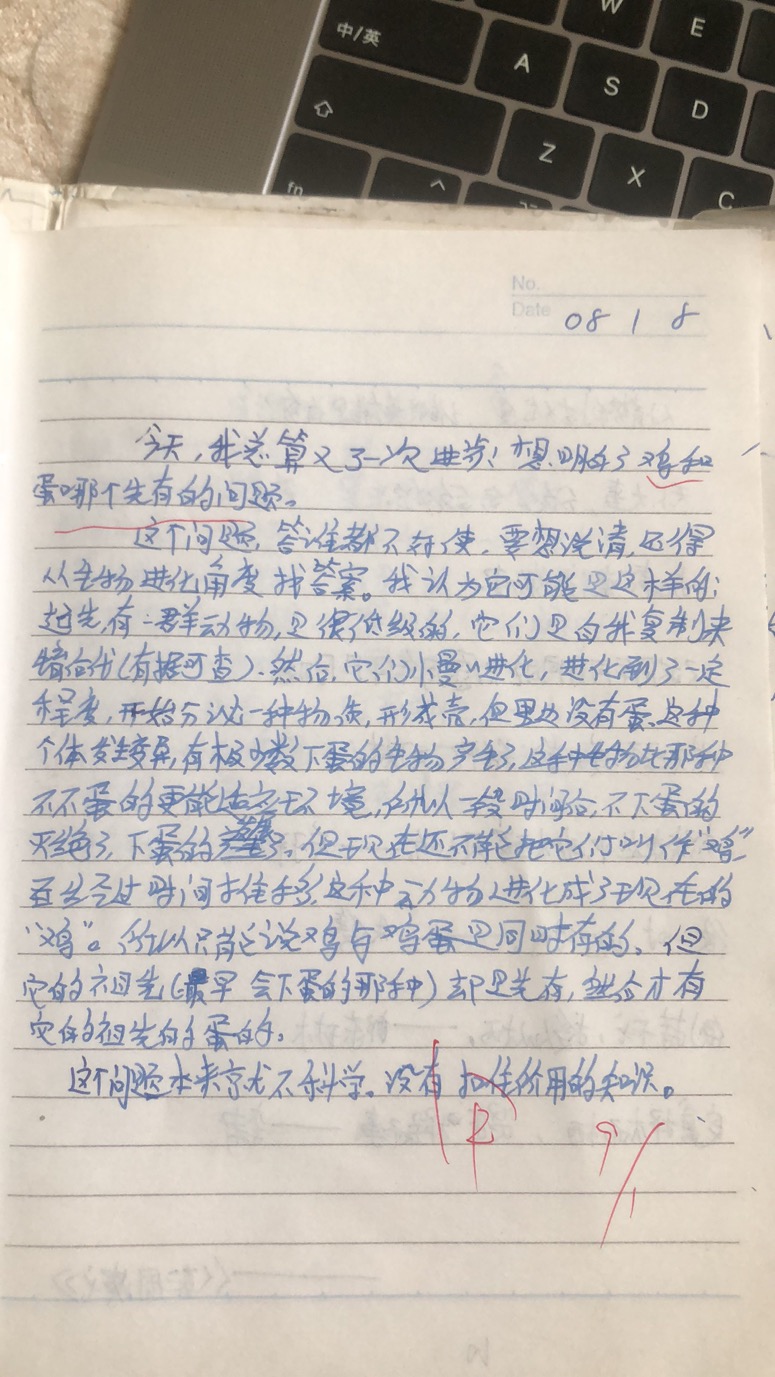 中/英
W
E
A
S
D
Z
X
C
fn
No.
Date 08 1 8
今天,我总算又了一次进步!想明白了鸡和
蛋哪个先有的问题。
这个问题,答谁都不好使,要想说清,还得
从生物进化角度找答案。我认为它可能是这样的:
起先,有一群动物,是很低级的,它们是自我复制来
繁后代(有据可查).然后,它们慢慢进化,进化到了一定
程度,开始分泌一种物质,形成壳,但里边没有蛋.这种
个体发生变异,有极少数下蛋的生物产生了,这种生物比那种
不下蛋的更能适应环境,所以一段时间后,不下蛋的
灭绝了,下蛋的 了。但现在还不能把它们叫作“鸡”
又经过时间推移,这种动物进化成了现在的
“鸡”。所以只能说鸡与鸡蛋是同时有的。但
它的祖先(最早会下蛋的那种)却是先有,然后才有
它的祖先的蛋的。
这个问题本来就不科学。没有 价用的知识。
9/1